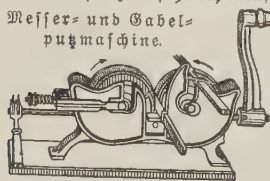 Messer- und Gabel-
putzmaschine.